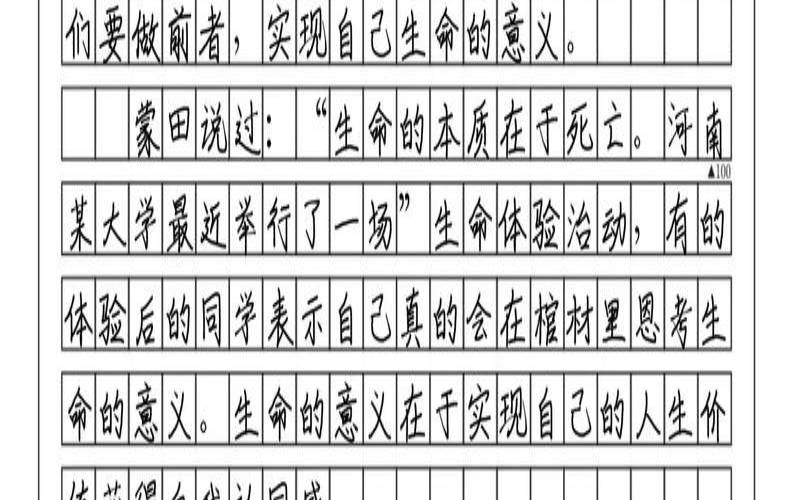 们要做前者，实现自己生命的意义。
蒙田说过：“生命的本质在于死亡。河南
▲100
某大学最近举行了一场”生命体验治动，有的
体验后的同学表示自己真的会在棺材里恩考生
命的意义。生命的意义在于实现自己的人生价